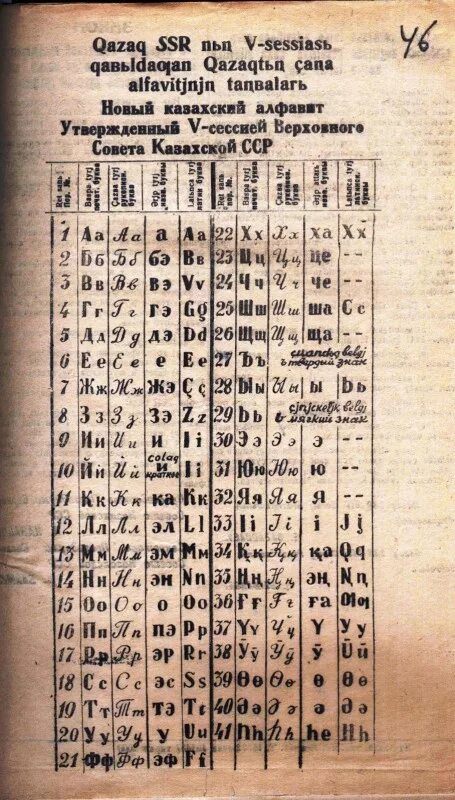 46
Qazaq SSR nьn V-sessiasь
qaвьldaƣan Qazaqtьn çaꞑa
alfavitjnjn taꞑвalarь
Новый казахский алфавит
Утвержденный V-сессией Верховного
Совета Казахской ССР
Ret sanь Пор. № Baspa tyrj печат. буквы Çazвa tyrj рукописн. буква Ərjp tyrj назв. буквы Latьnca tyrj латин. буква Ret sanь Пор. № Baspa tyrj печат. буквы Çazвa tyrj рукописн. буква назв. буквы Latьnca tyrj латинск. буквы
1 Аа Аа а Aa 22 Хх Хх ха Xx
2 Бб Бб бэ Bв 23 Цц Цц це --
3 Вв Вв вэ Vv 24 Чч Чч че --
4 Гг Гг гэ Gg 25 Шш Шш ша Cc
5 Дд Дд дэ Dd 26 Щщ Щщ ща
6 Ее Ее е Ee 27 Ъъ belgj ъ твердый знак
7 Жж Жж жэ Çç 28 Ыы Ыы ы Ьь
8 Зз Зз зэ Zz 29 Ьь cjnjckeljk belgj ь мягкий знак
9 Ии Ии и Ii 30 Ээ Ээ э --
10 Йй Йй colaq и краткое Ii 31 Юю Юю ю --
11 Кк Кк ка Kk 32 Яя Яя я --
12 Лл Лл эл Ll 33 Іі Іі і Jj
13 Мм Мм эм Mm 34 Ққ Ққ қа Qq
14 Нн Нн эн Nn 35 Ңң Ңң эң Ꞑꞑ
15 Оо Оо о Oo 36 Ғғ Ғғ ға Ƣƣ
16 Пп Пп пэ Pp 37 Үү Үү ү Yy
17 Рр Рр эр Rr 38 Ӯӯ Ӯӯ ӯ Ūū
18 Сс Сс эс Ss 39 Өө Өө ө Өө
19 Тт Тт тэ Tt 40 Әә Әә ә Әә
20 Уу Уу у Uu 41 Һһ Һһ һе Hh
21 Фф Фф эф Ff